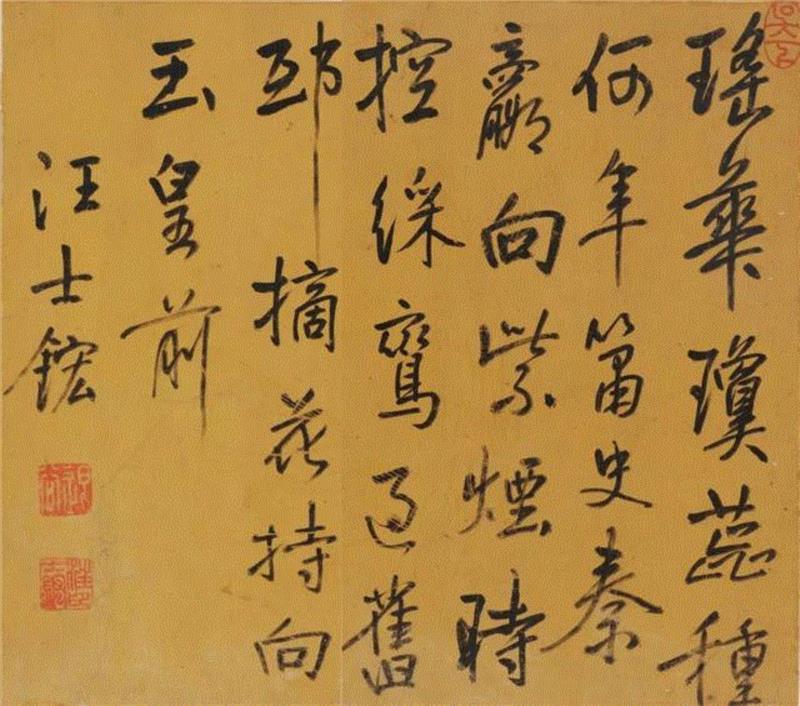 瑤華瓊蕊種
何年簫史秦
嬴向紫煙時
控綵鸞過舊
邸摘花持向
玉皇前
汪士鋐